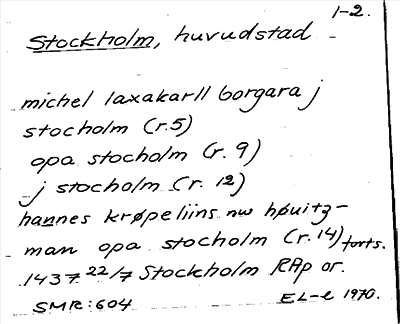 1-2.
Stockholm, huvudstad
michel laxakarll borgara j
stocholm (r.5)
opa stocholm (r. 9)
j stocholm (r. 12)
hannes krøpeliins nw høuitz-
man opa stocholm (r. 14) forts.
1437 22/7 Stockholm RAp or.
SMR: 604 EL-e 1970.